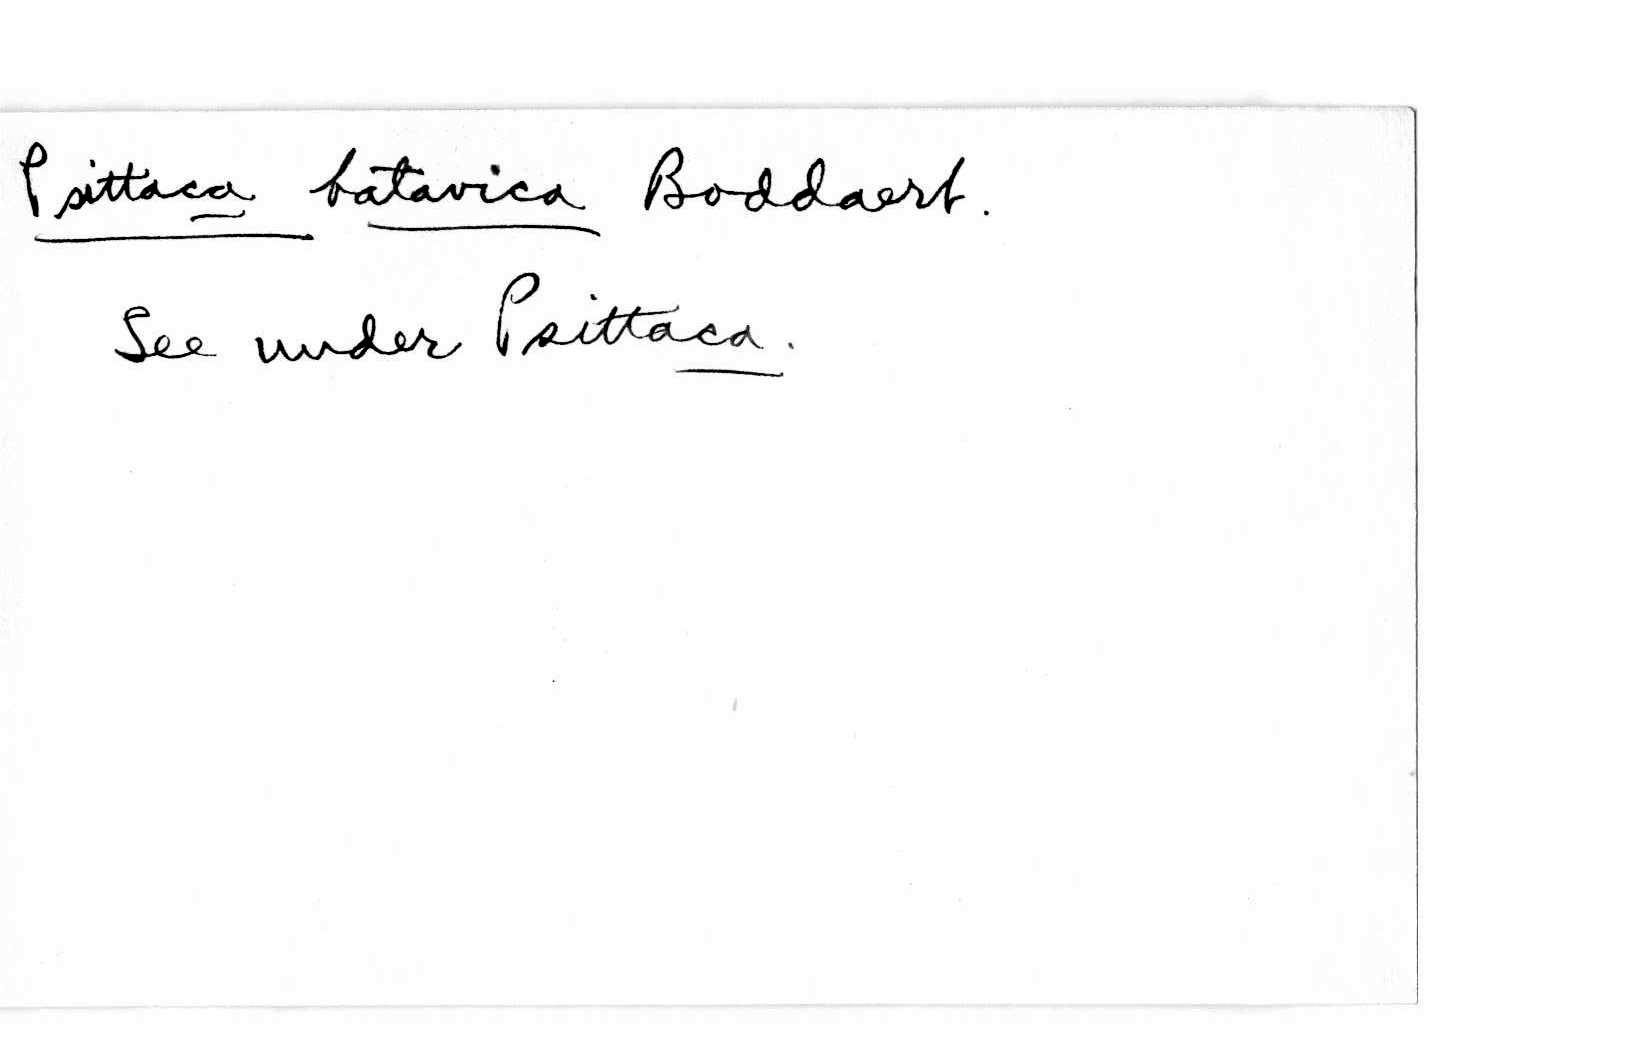 Psittaca batavica Boddaert.
See under Psittaca.